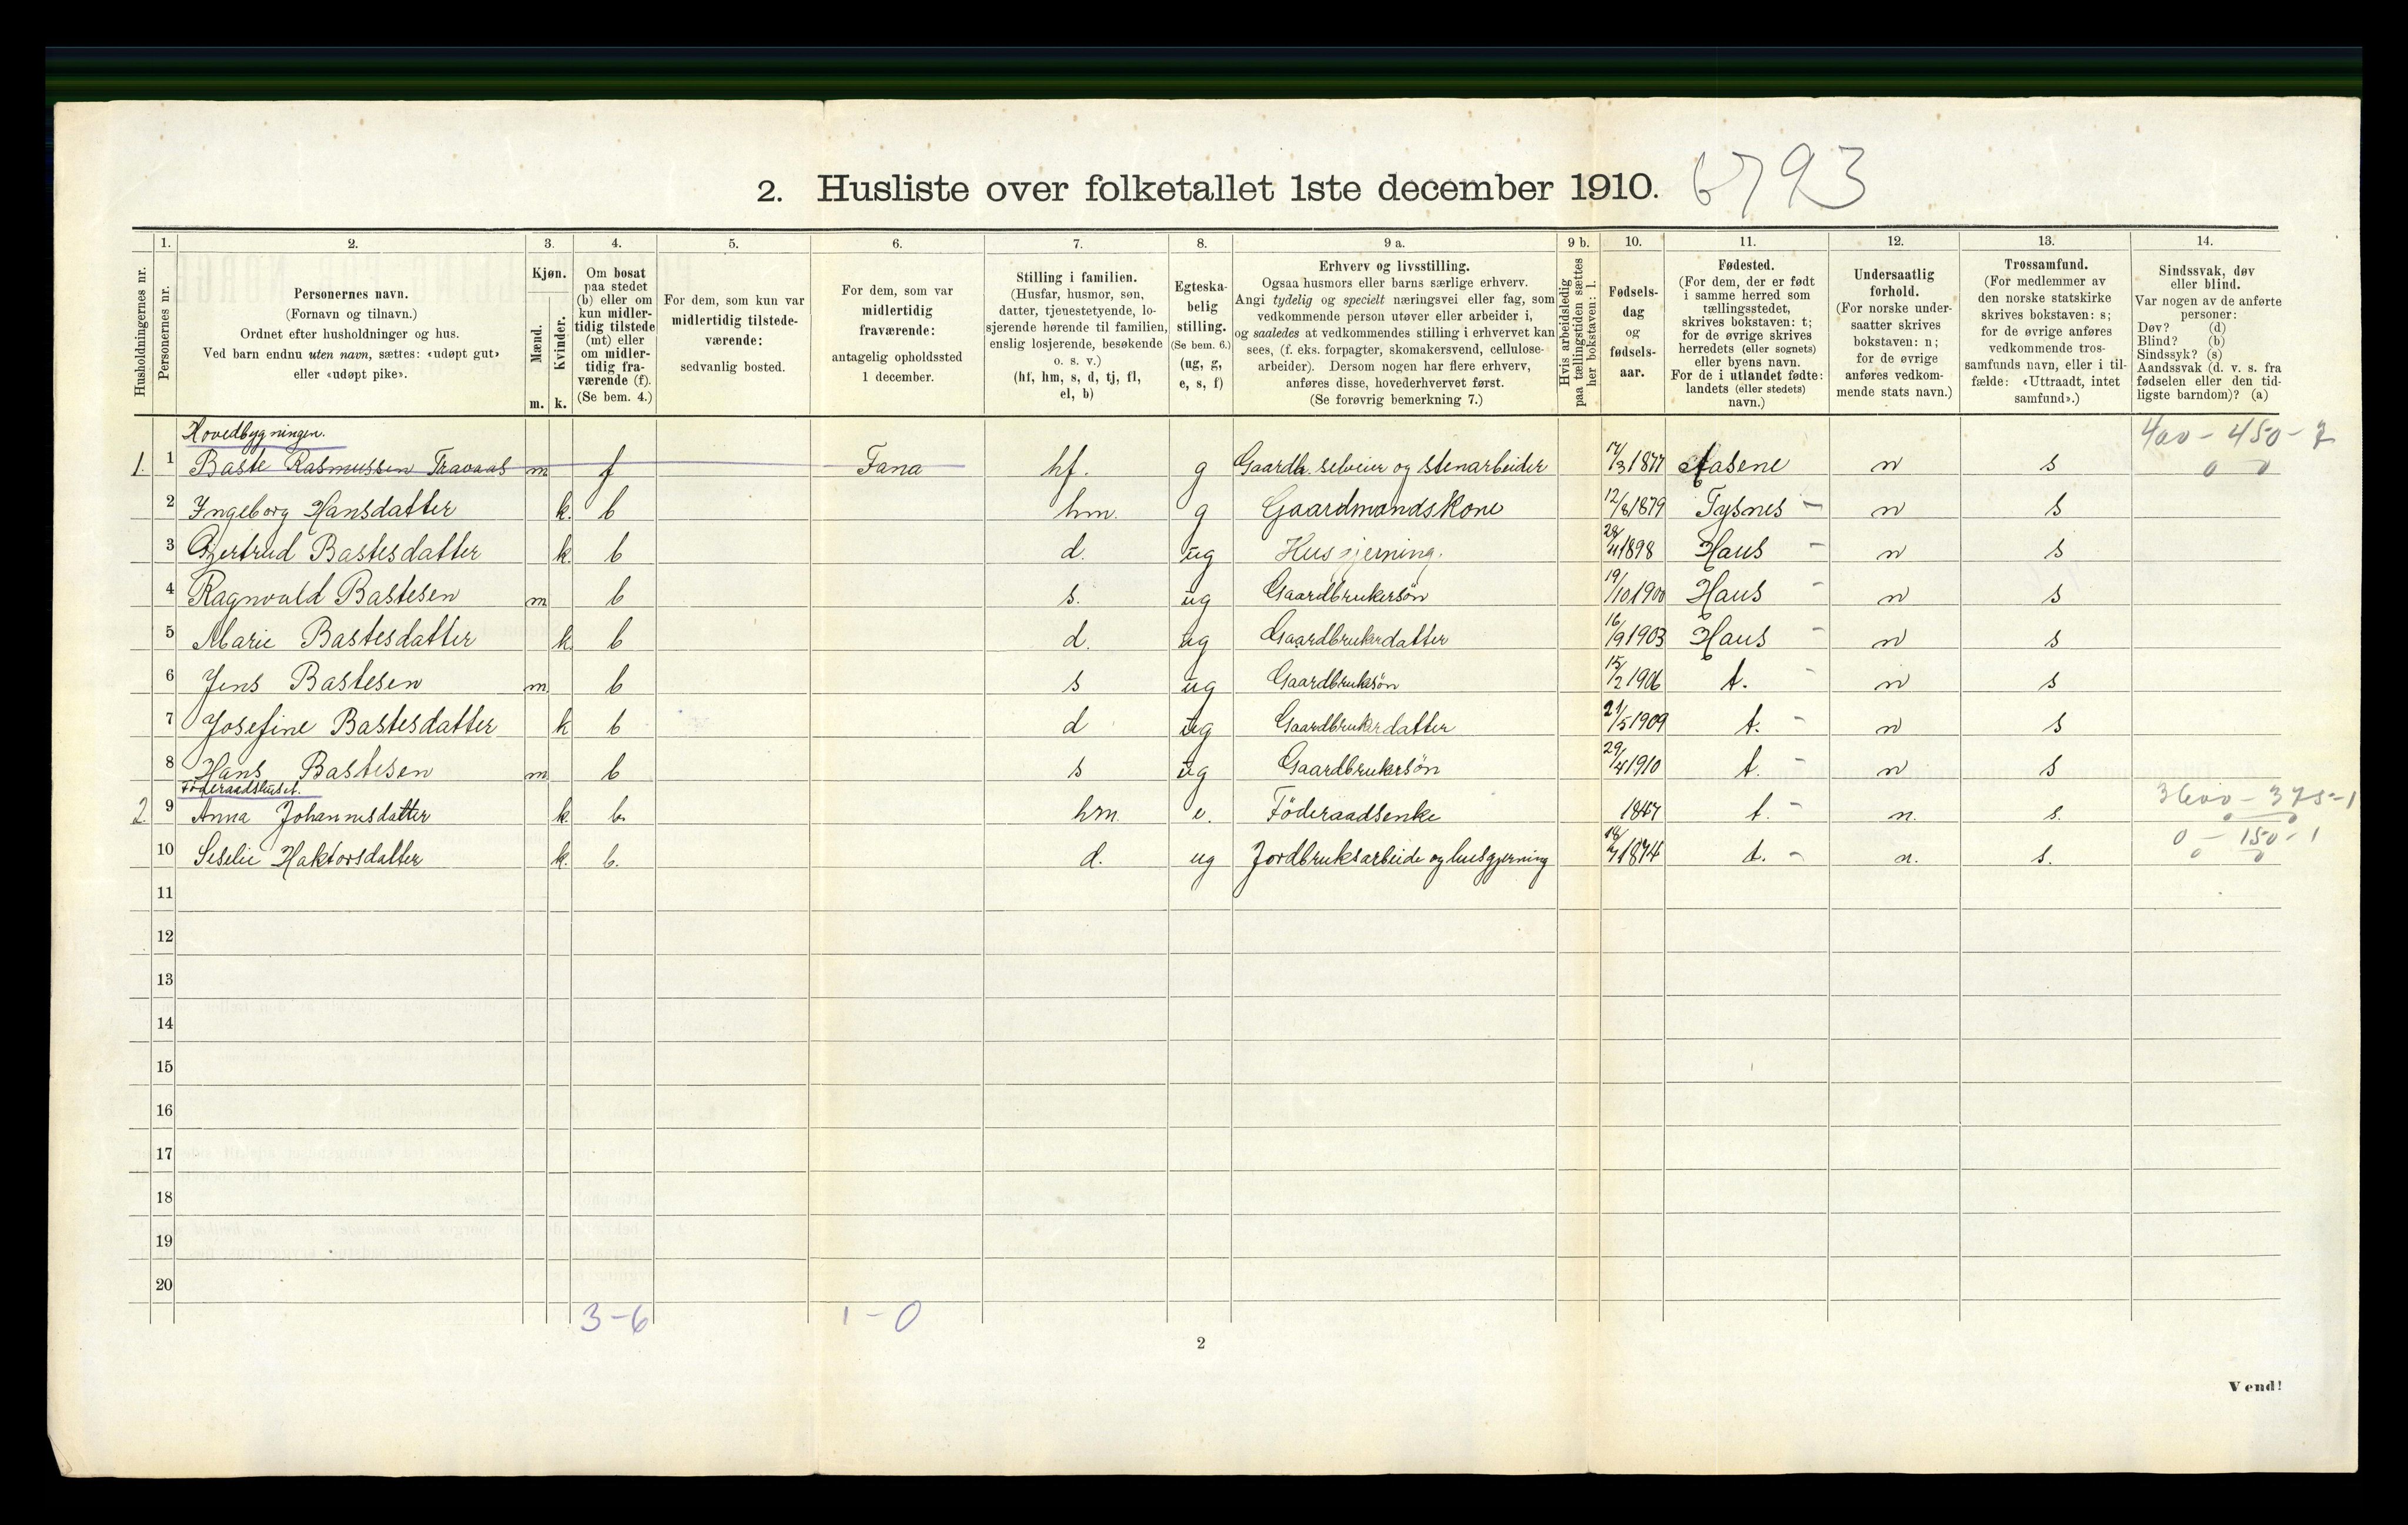 2. Husliste over folketallet 1ste december 1910. 6793
1. 2. 3. 4. 5. 6. 7. 8. 9 a. 9 b. 10. 11. 12. 13. 14.
Husholdningernes nr.
Personernes nr.
Personernes navn.
(Fornavn og tilnavn.)
Ordnet efter husholdninger og hus.
Ved barn endnu uten navn, sættes: «udøpt gut»
eller «udøpt pike».
Kjøn.
Mænd.
Kvinder.
m. k.
Om bosat
paa stedet
(b) eller om
kun midler-
tidig tilstede
(mt) eller
om midler-
tidig fra-
værende (f).
(Se bem. 4.)
For dem, som kun var
midlertidig tilstede-
værende:
sedvanlig bosted.
For dem, som var
midlertidig
fraværende:
antagelig opholdssted
1 december.
Stilling i familien.
(Husfar, husmor, søn,
datter, tjenestetyende, lo-
sjerende hørende til familien,
enslig losjerende, besøkende
o. s. v.)
(hf, hm, s, d, tj, fl,
el, b)
Egteska-
belig
stilling.
(Se bem. 6.)
(ug, g,
e, s, f)
Erhverv og livsstilling.
Ogsaa husmors eller barns særlige erhverv.
Angi tydelig og specielt næringsvei eller fag, som
vedkommende person utøver eller arbeider i,
og saaledes at vedkommendes stilling i erhvervet kan
sees, (f. eks. forpagter, skomakersvend, cellulose-
arbeider). Dersom nogen har flere erhverv,
anføres disse, hovederhvervet først.
(Se forøvrig bemerkning 7.)
Hvis arbeidsledig
paa tællingstiden sættes
her bokstaven: l.
Fødsels-
dag
og
fødsels-
aar.
Fødested.
(For dem, der er født
i samme herred som
tællingsstedet,
skrives bokstaven: t;
for de øvrige skrives
herredets (eller sognets)
eller byens navn.
For de i utlandet fødte:
landets (eller stedets)
navn.)
Undersaatlig
forhold.
(For norske under-
saatter skrives
bokstaven: n;
for de øvrige
anføres vedkom-
mende stats navn.)
Trossamfund.
(For medlemmer av
den norske statskirke
skrives bokstaven: s;
for de øvrige anføres
vedkommende tros-
samfunds navn, eller i til-
fælde: «Uttraadt, intet
samfund».)
Sindssvak, døv
eller blind.
Var nogen av de anførte
personer:
Døv? (d)
Blind? (b)
Sindssyk? (s)
Aandssvak (d. v. s. fra
fødselen eller den tid-
ligste barndom)? (a)
Hovedbygningen. 400 - 450 - 2
1. 1 Baste Rasmussen Travaas m f Fana hf. g Gaardb. selveier og stenarbeider 17/3 1877 Aasene n s 0 0
2 Ingeborg Hansdatter k. b hm. g Gaardmandskone 12/8 1879 Tysnes - n s
3 Gjertrud Bastesdatter k. b d. ug Husgjerning. 28/11 1898 Haus - n s
4 Ragnvald Bastesen m b s. ug Gaardbrukersøn 19/10 1900 Haus - n s
5 Marie Bastesdatter k. b d. ug Gaardbrukerdatter 16/9 1903 Haus - n s
6 Jens Bastesen m b s ug Gaardbrukersøn 15/2 1906 t. - n s
7 Josefine Bastesdatter k b d ug Gaardbrukerdatter 21/5 1909 t. - n s
8 Hans Bastesen m b s ug Gaardbrukersøn 29/4 1910 t. - n s
Föderaadshuset. 3600 - 375 - 1
2. 9 Anna Johannesdatter k. b. hm. e. Föderaadsenke 1847 t. - n. s. 0 0
0 - 150 - 1
10 Seselie Haktorsdatter k. b. d. ug Jordbruksarbeide og husgjerning 18/7 1874 t. - n. s. 0 0
11
12
13
14
15
16
17
18
19
20
3-6 1-0
2
Vend!